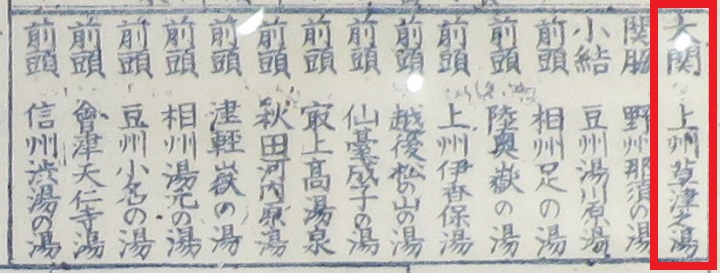 大関 上州草津之湯
関脇 野州那須の湯
小結 豆州湯川原湯
前頭 相州足の湯
前頭 陸奥嶽の湯
前頭 上州伊香保湯
前頭 越後松の山の湯
前頭 仙臺成子の湯
前頭 㝡上高湯泉
前頭 秋田河内原湯
前頭 津軽嶽の湯
前頭 相州湯元の湯
前頭 豆州小名の湯
前頭 會津天仁寺湯
前頭 信州渋湯の湯